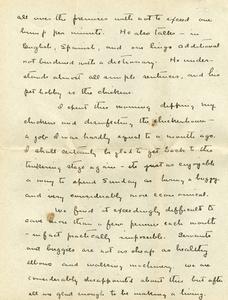 all over the premises with not to exceed one
bump per minute. He also talks - in
English, Spanish, and one lingo additional
not burdened with a dictionary. He under-
stands almost all simple sentences, and his
pet hobby is the chickens.
I spent this morning dipping my
chickens and disinfecting the chickenhouse -
a job I was hardly equal to a month ago.
I shall certainly be glad to get back to the
tinkering stage again - its just as enjoyable
a way to spend Sunday as having a buggy
and very considerably more economical.
We find it exceedingly difficult to
save more than a few pennies each month
- in fact practically impossible. Servants
and buggies are not as cheap as healthy
elbows and walking machinery. We are
considerably disappointed about this but after
all are glad enough to be making a living.